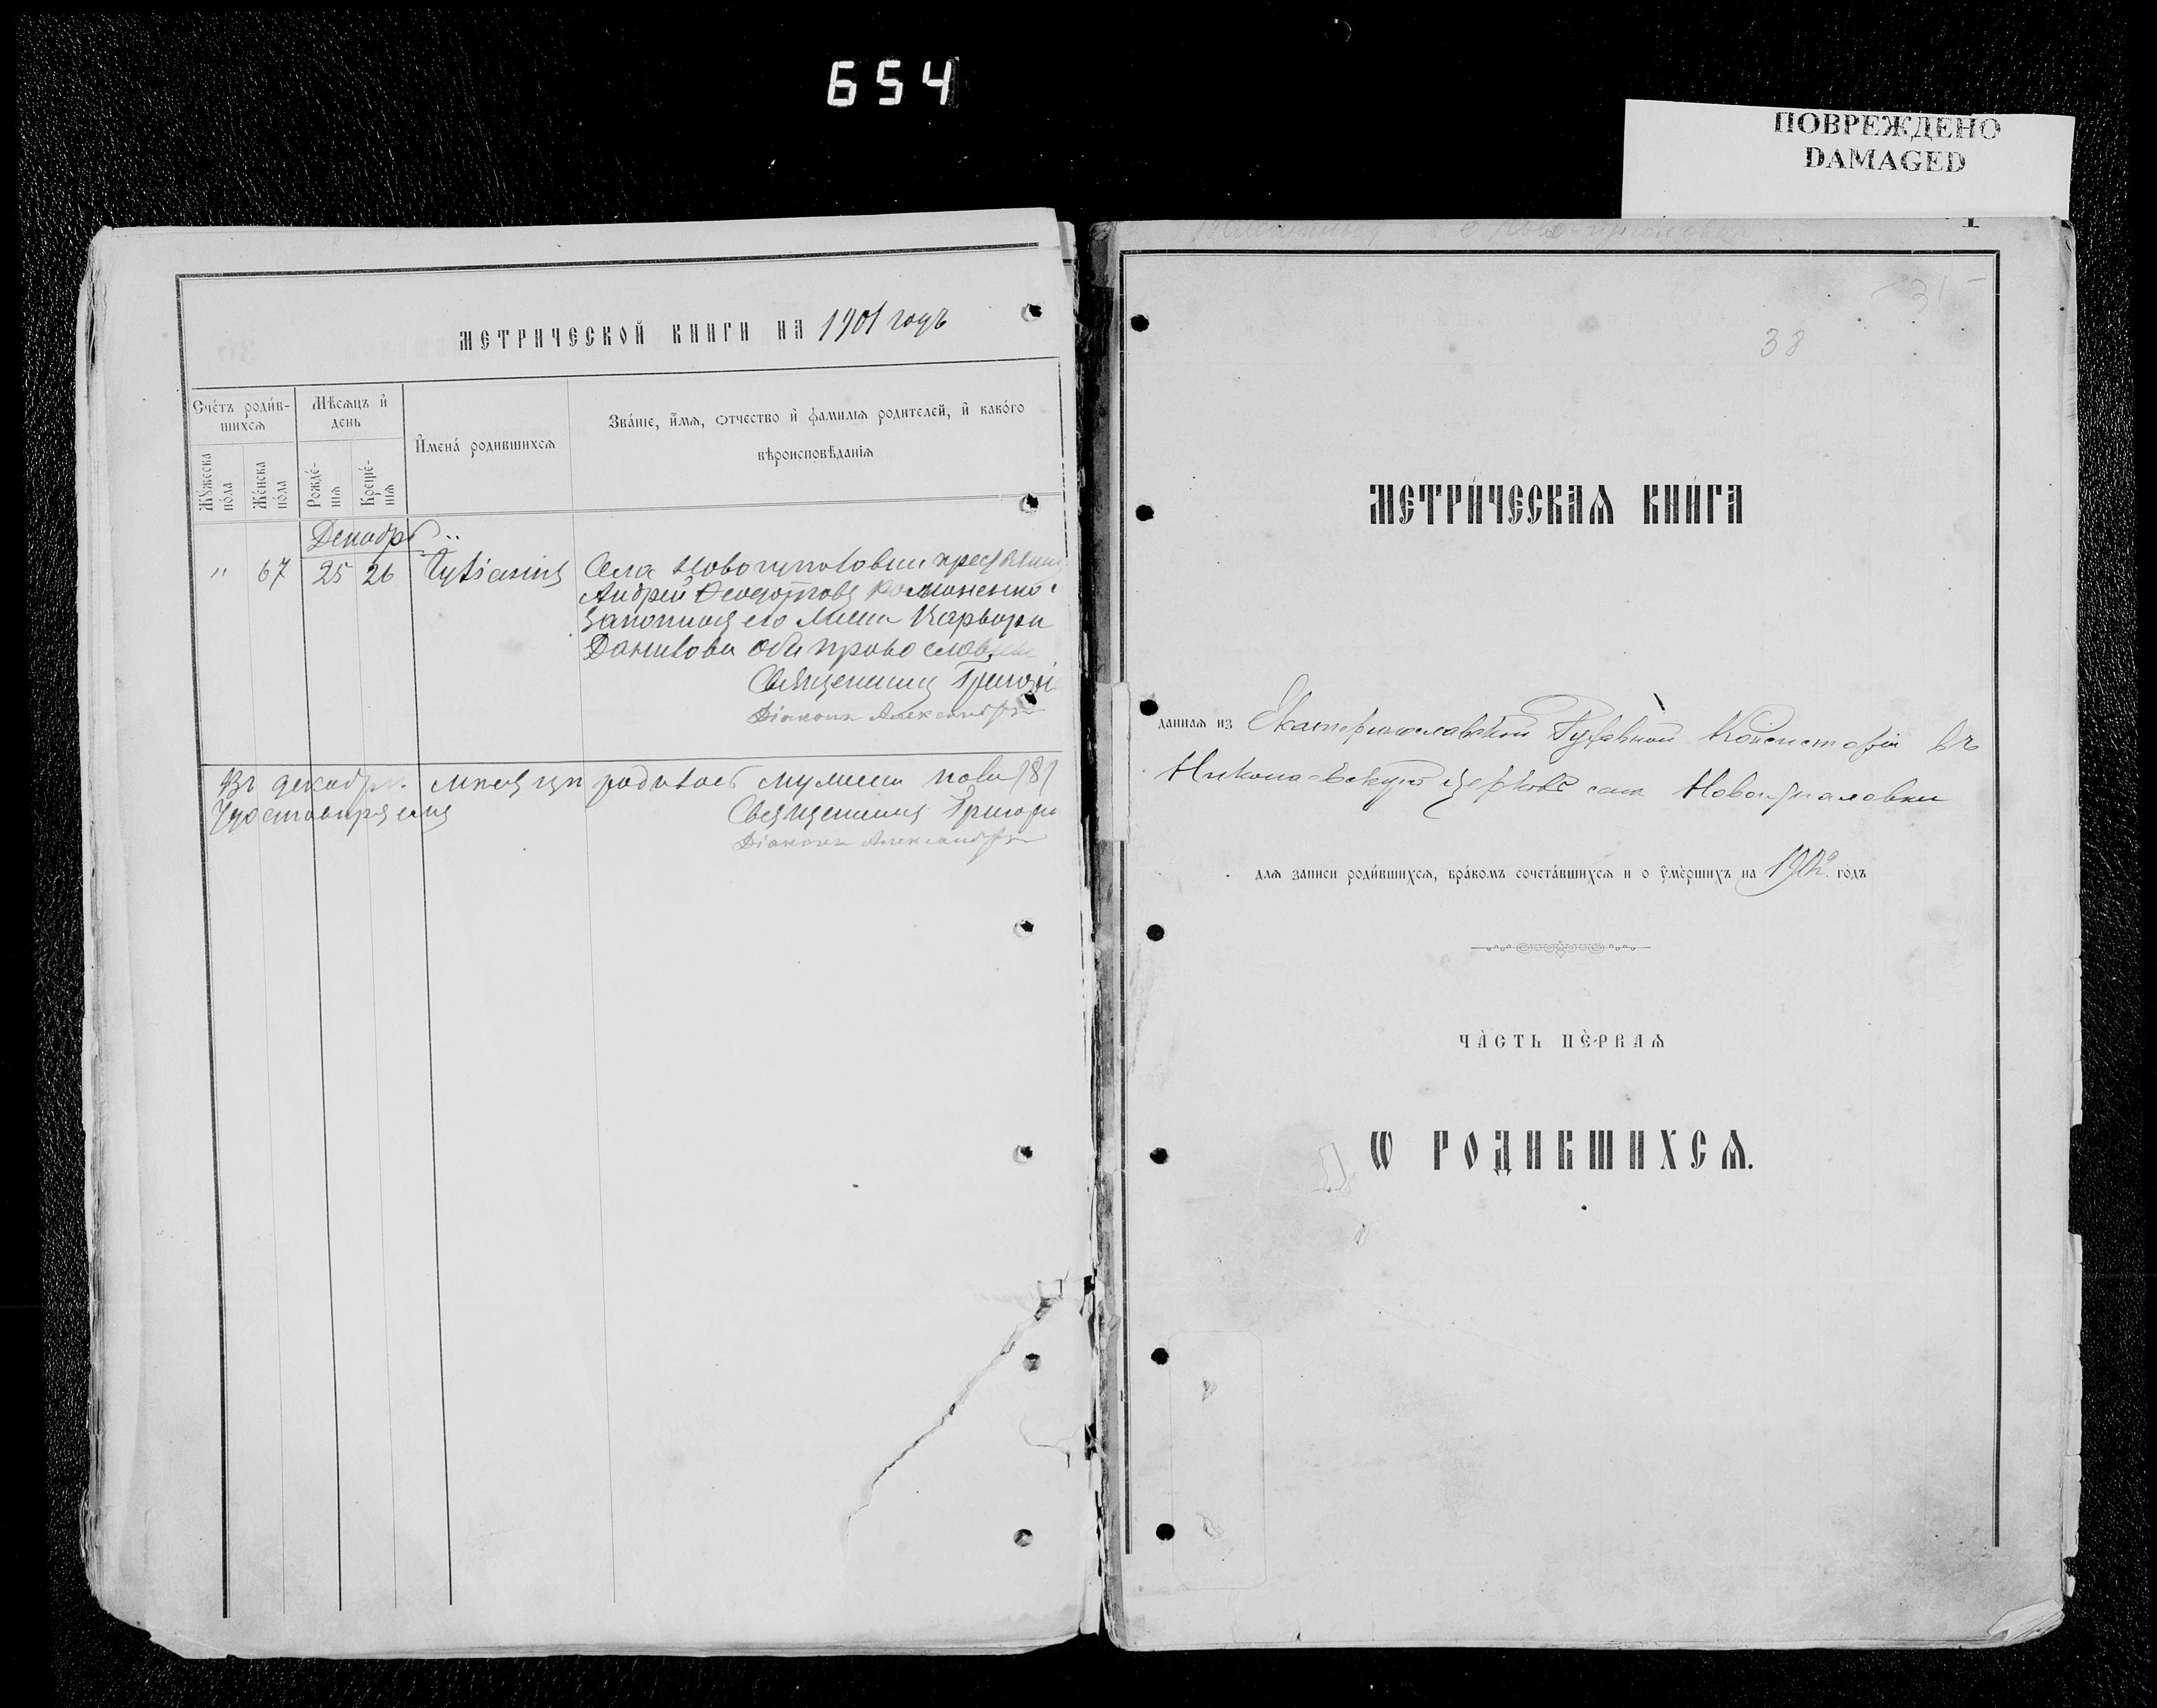 654
ПОВРЕЖДЕНО
DAMAGED
МЕТРИЧЕСКОЙ КНИГИ НА 1901 годъ
Счетъ родив-
шихся
Мѣсяцъ и
день
Имена родившихся
Званіе, имя, отчество и фамилія родителей, и какого
вѣроисповѣданія
Мужеска
пола
Женска
пола
Рожде-
нія
Креще-
нія
Декабрь
" 67 25 26
Села Новогупаловки
Андрей Романенко
законная его жена
Данилова оба православ
Священникъ Григорі
Діаконъ Александръ
Въ декабрѣ мѣсяцѣ родилось мужеска пола /8/
Священникъ Григорі
Діаконъ Александръ
1
31
38
МЕТРИ́ЧЕСКАѦ КНИ́ГА
данная из Екатеринославской Духовной Консисторіи въ
Николаевскую церковь села Новогупаловки
для записи роди́вшихся, бра́комъ сочета́вшихся и о ᲂумѐршихъ на 1902 годъ
ЧА̀СТЬ ПЀРВАѦ
Ѡ РОДИВШИХСѦ.